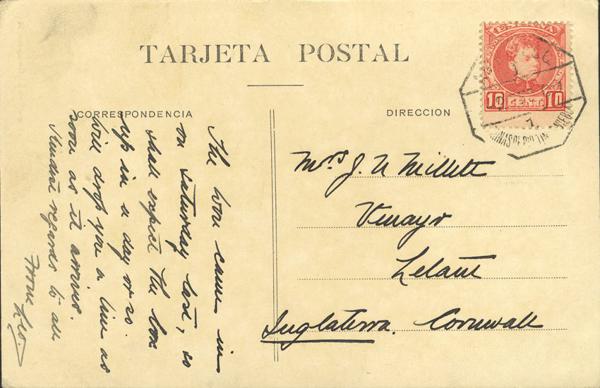 TARJETA POSTAL
ESPAÑA
10 CENT. 10
CORRESPONDENCIA
DIRECCION
The Wou came in
on Saturday last, so
shall expect the box
up in a day or so.
Will drop you a line as
soon as it arrives.
Kindest regards to all
From Leo
Mrs J. N Millett
Vinays
Lelant
Inglaterra. Cornwall